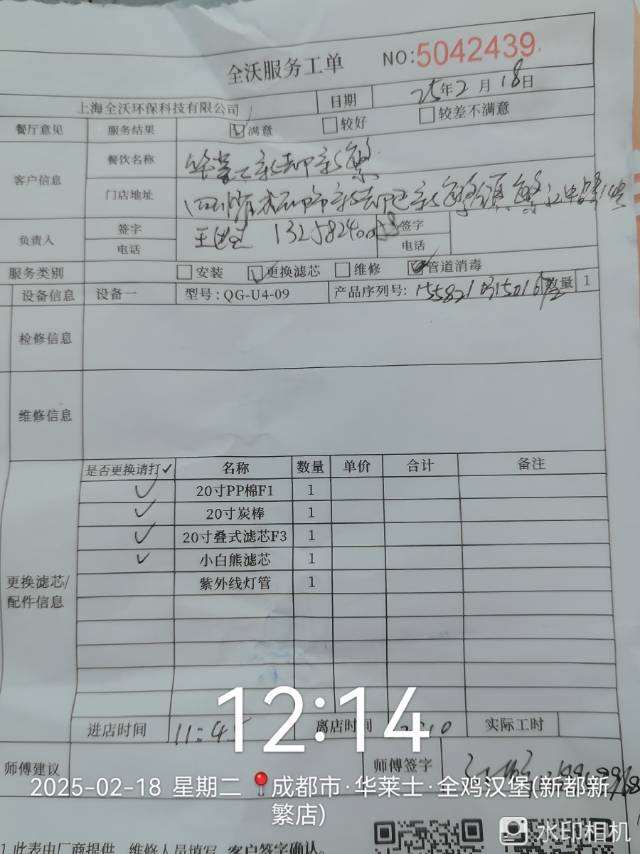 全沃服务工单 NO:5042439
上海全沃环保科技有限公司 日期 25年2月18日
餐厅意见 服务结果 ☑满意 □较好 □较差不满意
客户信息 餐饮名称 新都新繁
门店地址
负责人 签字 签字
电话 电话
服务类别 □安装 ☑更换滤芯 □维修 ☑管道消毒
设备信息 设备一 型号:QG-U4-09 产品序列号: 数量 1
检修信息
维修信息
是否更换请打✓ 名称 数量 单价 合计 备注
✓ 20寸PP棉F1 1
✓ 20寸炭棒 1
✓ 20寸叠式滤芯F3 1
✓ 小白熊滤芯 1
紫外线灯管 1
更换滤芯/
配件信息
进店时间 11:45 离店时间 实际工时
12:14
师傅建议 师傅签字
2025-02-18 星期二 成都市·华莱士·全鸡汉堡(新都新
繁店)
1.此表由厂商提供，维修人员填写，客户签字确认。
水印相机